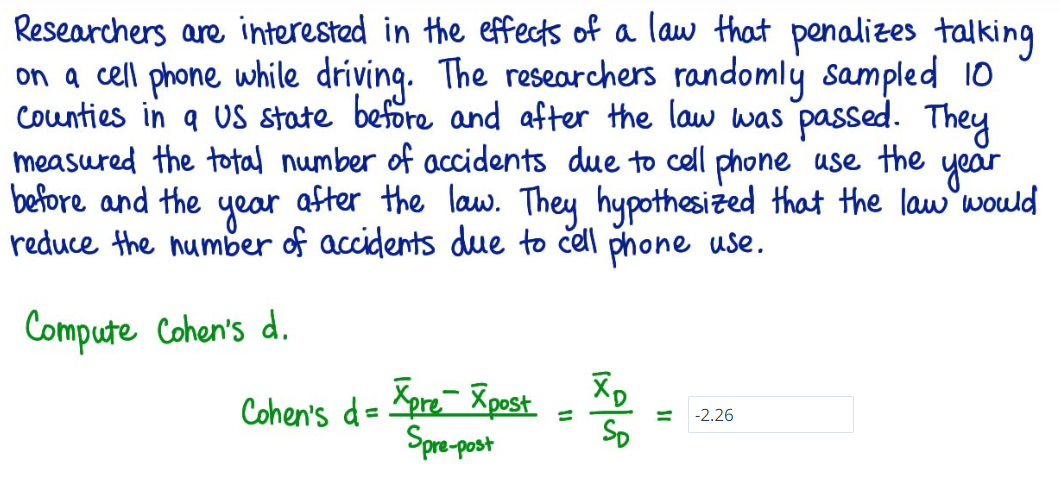 Researchers are interested in the effects of a law that penalizes talking
on a cell phone while driving. The researchers randomly sampled 10
counties in a US state before and after the law was passed. They
measured the total number of accidents due to cell phone use the year
before and the year after the law. They hypothesized that the law would
reduce the number of accidents due to cell phone use.
Compute Cohen's d.
Cohen's d = (x̄pre - x̄post) / Spre-post = x̄D / SD = -2.26